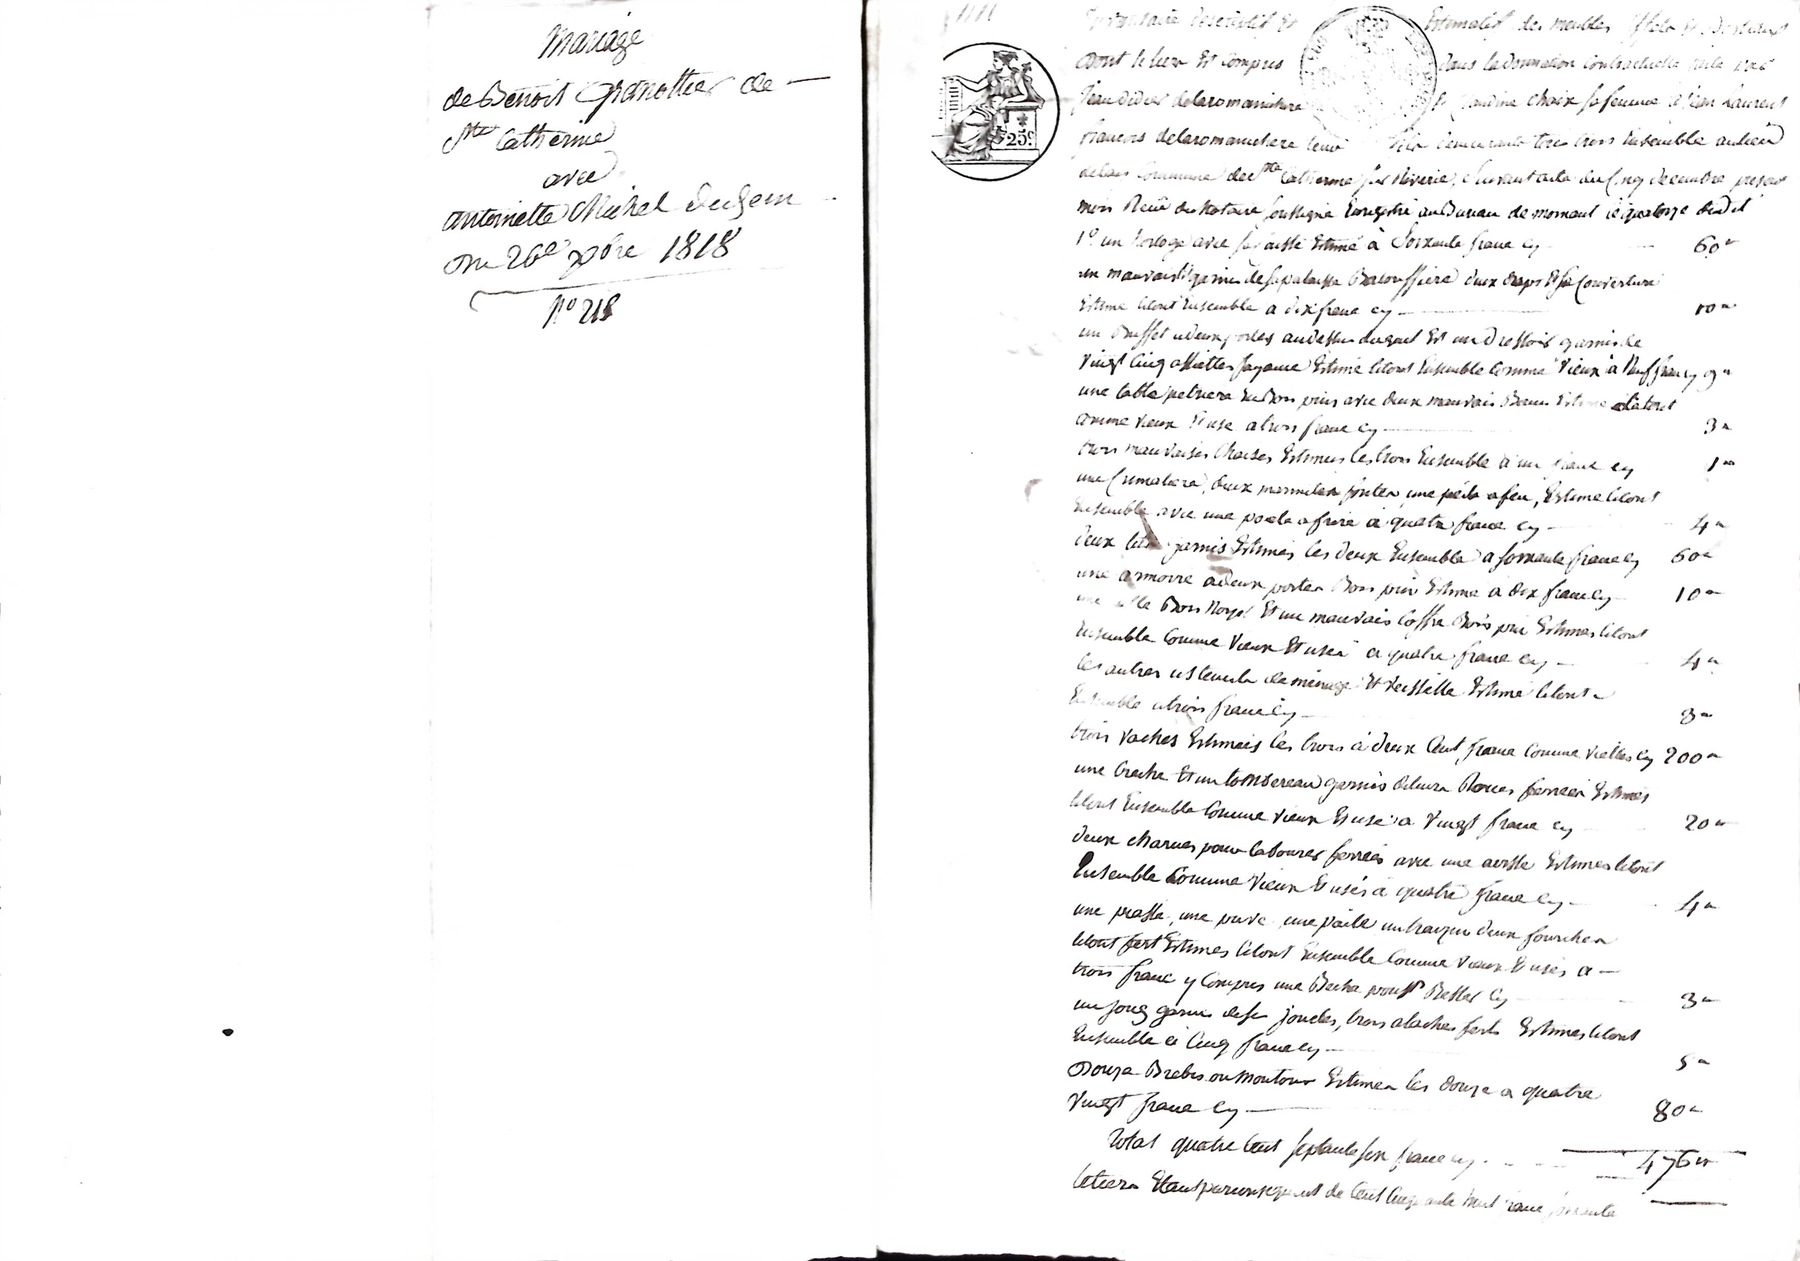 Mariage
de Benoit Granottier de
Ste Catherine
avec
antoinette Michel Dugem
Du 26e xbre 1818
No 218
25c.
Inventaire descriptif Et Estimatif des meubles
Dont le tiers Est Compris dans la donnation Contractuelle
jean didier delaromanichere Et Claudine Choix sa femme a jean Laurent
francois delaromanichere leur demeurants tous trois Ensemble au lieu
commune de Ste Catherine sur Riverie, suivant acte du Cinq decembre present
mois Recu du Notaire soussigné Enregistré au Bureau de mornant le quatorze dudit
1o un horloge avec sa Caisse Estimé à Soixante franc Cy 60
un mauvais lit garnis de sa palaisse Baloussiere deux draps Et sa Couverture
Estimé letout Ensemble a dix franc Cy 10
un Buffet a deux portes au dessus duquel Est un Dressoir garnis de
Vingt Cinq assiettes fayance Estimé letout Ensemble Comme Vieux à Neuf franc Cy 9
une table petriere En Bois pins avec deux mauvais Bancs Estimé letout
comme vieux Et usé a trois franc Cy 3
trois mauvaises Chaises Estimées les trois Ensemble à un franc Cy 1
une Cramaliere, deux marmites fontes une pèle a feu, Estimé letout
Ensemble avec une poele a frire a quatre franc Cy 4
deux lits garnis Estimés les deux Ensemble a soixante franc Cy 60
une armoire a deux portes Bois pin Estimé à dix franc Cy 10
une Bois Noyer Et un mauvais Coffre Bois pin Estimés letout
Ensemble Comme Vieux Et usés a quatre franc Cy 4
les autres ustensils de menage Et Vaisselle Estimé letout
Ensemble a trois franc Cy 3
trois Vaches Estimés les trois à deux Cent franc Comme Vielles Cy 200
une Et un tombereau garnis de leurs Roues ferrées Estimés
letout Ensemble Comme vieux Et usé a Vingt franc Cy 20
deux charues pour labourer ferrées avec une Estimés letout
Ensemble Comme Vieux Et usés à quatre franc Cy 4
une une une deux fourches
letout fert Estimés letout Ensemble Comme Vieux Et usés a
trois franc y Compris une Beche Cy 3
un joug garnis de ses joucles, trois ataches fert Estimés letout
Ensemble à Cinq franc Cy 5
Douze Brebis ou Moutons Estimés les douze a quatre
Vingt franc Cy 80
Total quatre Cent septante six franc Cy 476
le tiers Etant par consequent de Cent Cinquante huit franc soixante